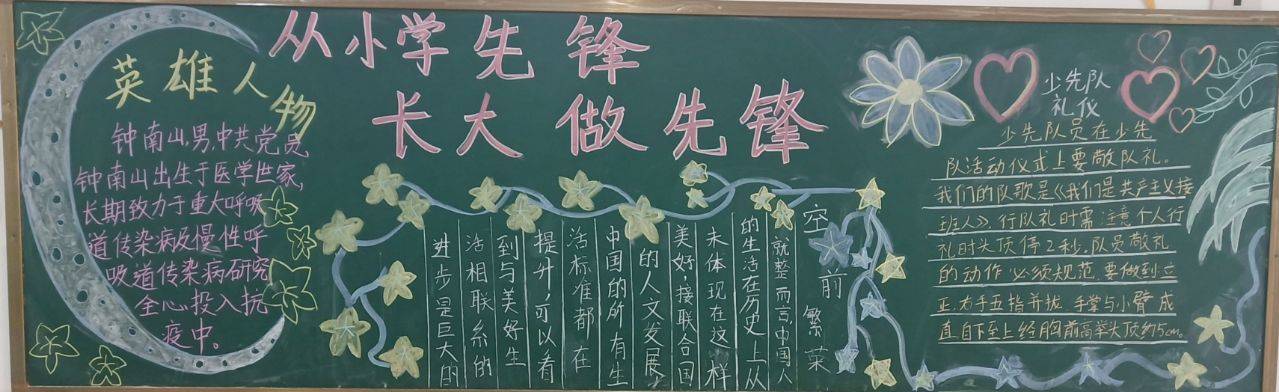 从小学先锋
长大做先锋
英雄人物
钟南山,男,中共党员,
钟南山出生于医学世家,
长期致力于重大呼吸
道传染病及慢性呼
吸道传染病研究
全心投入抗
疫中。
空前繁荣
就整而言中国人
的生活在历史上从
未体现在这样
美好接联合国
的人文发展
中国的所有生
活标准都在
提升,可以看
到与美好生
活相联系的
进步是巨大的
少先队
礼仪
少先队员在少先
队活动仪式上要敬队礼。
我们的队歌是《我们是共产主义接
班人》.行队礼时需注意个人行
礼时头顶停2秒.队员敬礼
的动作必须规范.要做到立
正.右手五指并拢 手掌与小臂成
直.自下至上经胸前高举头顶约5cm。